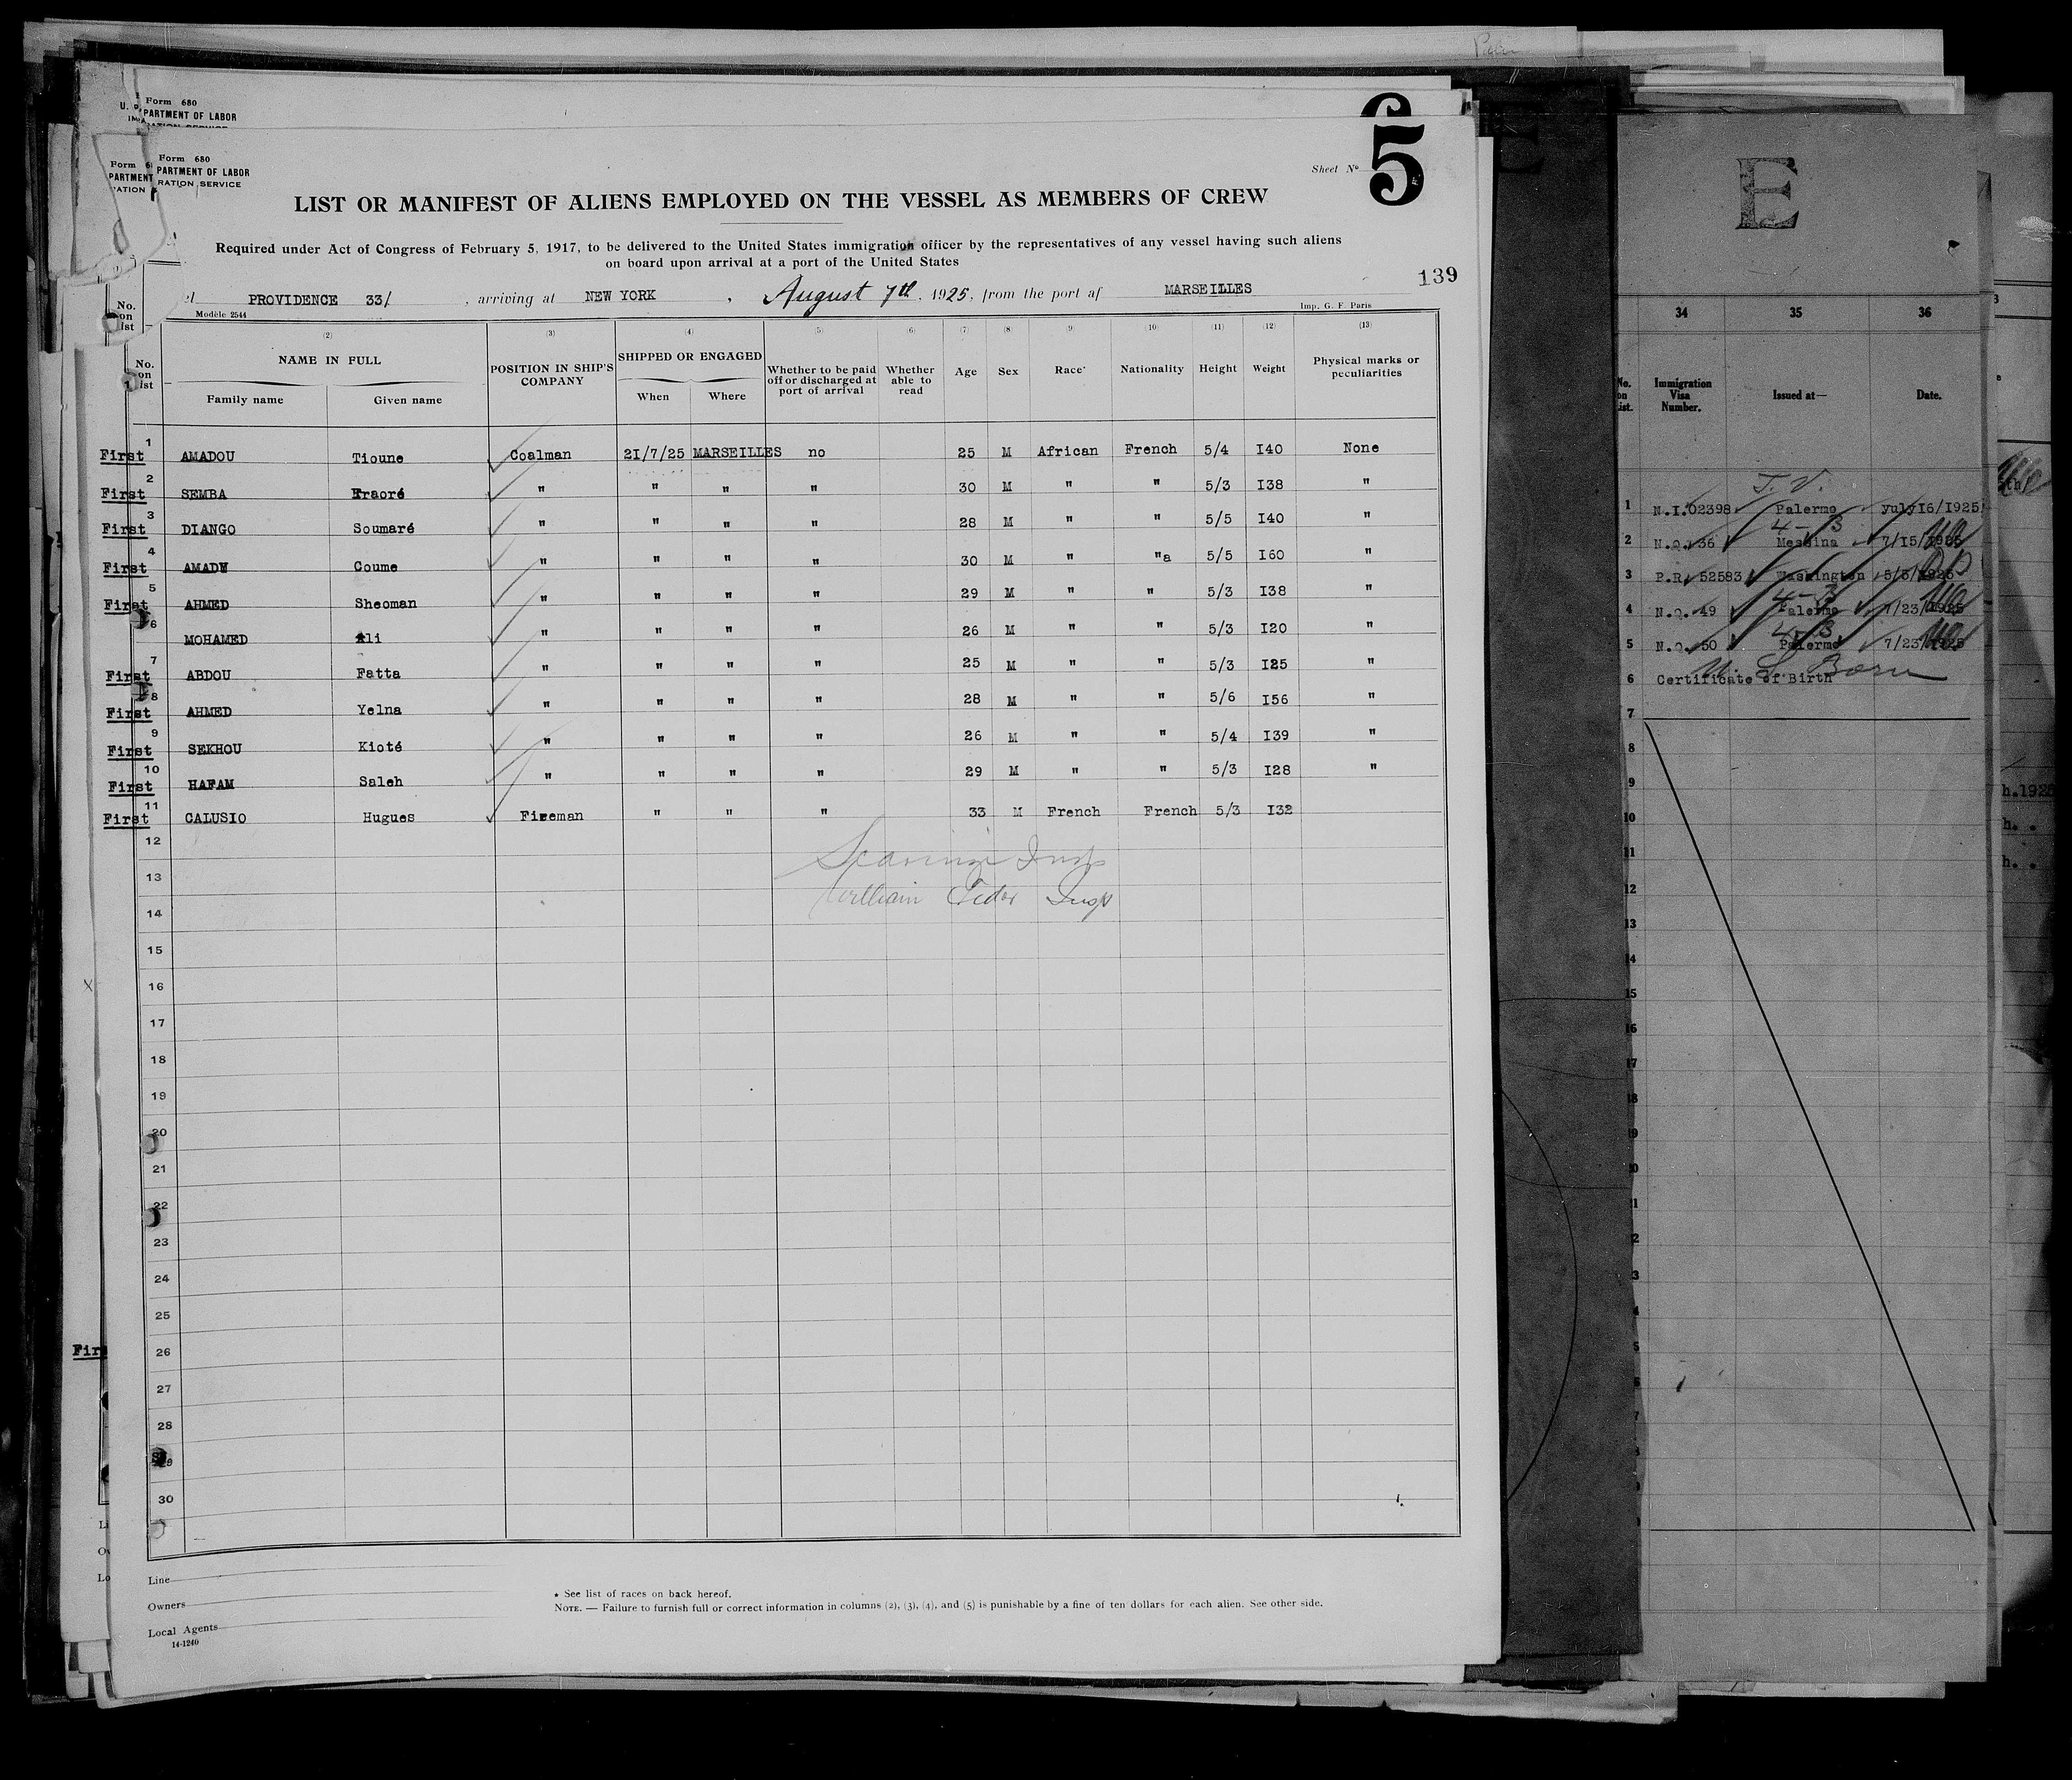 Form 680
U. PARTMENT OF LABOR
Form 680
PARTMENT OF LABOR
RATION SERVICE
Sheet Nº 5
LIST OR MANIFEST OF ALIENS EMPLOYED ON THE VESSEL AS MEMBERS OF CREW
Required under Act of Congress of February 5, 1917, to be delivered to the United States immigration officer by the representatives of any vessel having such aliens
on board upon arrival at a port of the United States
139
el PROVIDENCE 33/ , arriving at NEW YORK , August 7th, 1925, from the port of MARSEILLES
Modèle 2544
Imp. G. F. Paris
(2) (3) (4) (5) (6) (7) (8) (9) (10) (11) (12) (13)
No. on list
NAME IN FULL
Family name Given name
POSITION IN SHIP'S COMPANY
SHIPPED OR ENGAGED
When Where
Whether to be paid off or discharged at port of arrival
Whether able to read
Age Sex Race* Nationality Height Weight
Physical marks or peculiarities
First 1 AMADOU Tioune Coalman 21/7/25 MARSEILLES no 25 M African French 5/4 I40 None
First 2 SEMBA Traoré " " " " 30 M " " 5/3 I38 "
First 3 DIANGO Soumaré " " " " 28 M " " 5/5 I40 "
First 4 AMADY Coume " " " " 30 M " "a 5/5 I60 "
First 5 AHMED Sheoman " " " " 29 M " " 5/3 I38 "
6 MOHAMED Ali " " " " 26 M " " 5/3 I20 "
First 7 ABDOU Fatta " " " " 25 M " " 5/3 I25 "
First 8 AHMED Yelna " " " " 28 M " " 5/6 I56 "
First 9 SEKHOU Kioté " " " " 26 M " " 5/4 I39 "
First 10 HAFAM Saleh " " " " 29 M " " 5/3 I28 "
First 11 CALUSIO Hugues Fireman " " " 33 M French French 5/3 I32
12
13
William Insp
14
15
16
17
18
19
20
21
22
23
24
25
26
27
28
29
30
Line
Owners
Local Agents
14-1240
* See list of races on back hereof.
NOTE. — Failure to furnish full or correct information in columns (2), (3), (4), and (5) is punishable by a fine of ten dollars for each alien. See other side.
E
34 35 36
No. on list.
Immigration Visa Number.
Issued at—
Date.
1 N.I.02398 Palermo yuly16/1925
2 N.Q. 36 Messina 7/15/1925
3 P.R. 52583 Washington 5/5/1925
4 N.Q. 49 Palermo 7/23/1925
5 N.Q. 50 Palermo 7/23/1925
6 Certificate of Birth U. S. Born
7
8
9
10
11
12
13
14
15
16
17
18